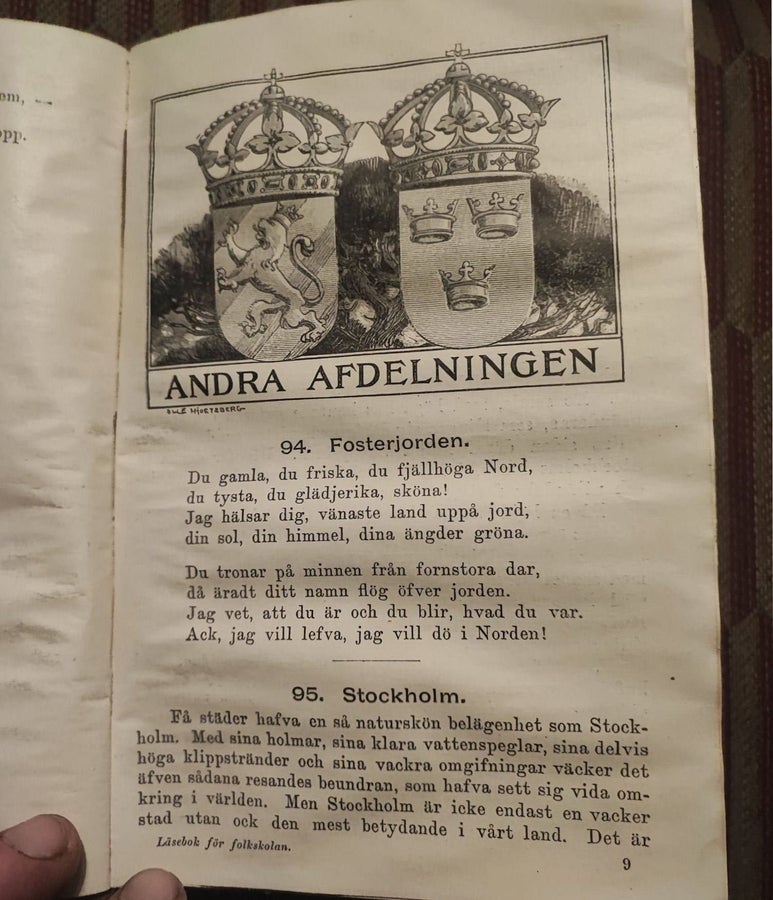 em, —
opp.
ANDRA AFDELNINGEN
OLLE HJORTZBERG
94. Fosterjorden.
Du gamla, du friska, du fjällhöga Nord,
du tysta, du glädjerika, sköna!
Jag hälsar dig, vänaste land uppå jord,
din sol, din himmel, dina ängder gröna.
Du tronar på minnen från fornstora dar,
då äradt ditt namn flög öfver jorden.
Jag vet, att du är och du blir, hvad du var.
Ack, jag vill lefva, jag vill dö i Norden!
95. Stockholm.
Få städer hafva en så naturskön belägenhet som Stock-
holm. Med sina holmar, sina klara vattenspeglar, sina delvis
höga klippstränder och sina vackra omgifningar väcker det
äfven sådana resandes beundran, som hafva sett sig vida om-
kring i världen. Men Stockholm är icke endast en vacker
stad utan ock den mest betydande i vårt land. Det är
Läsebok för folkskolan.
9